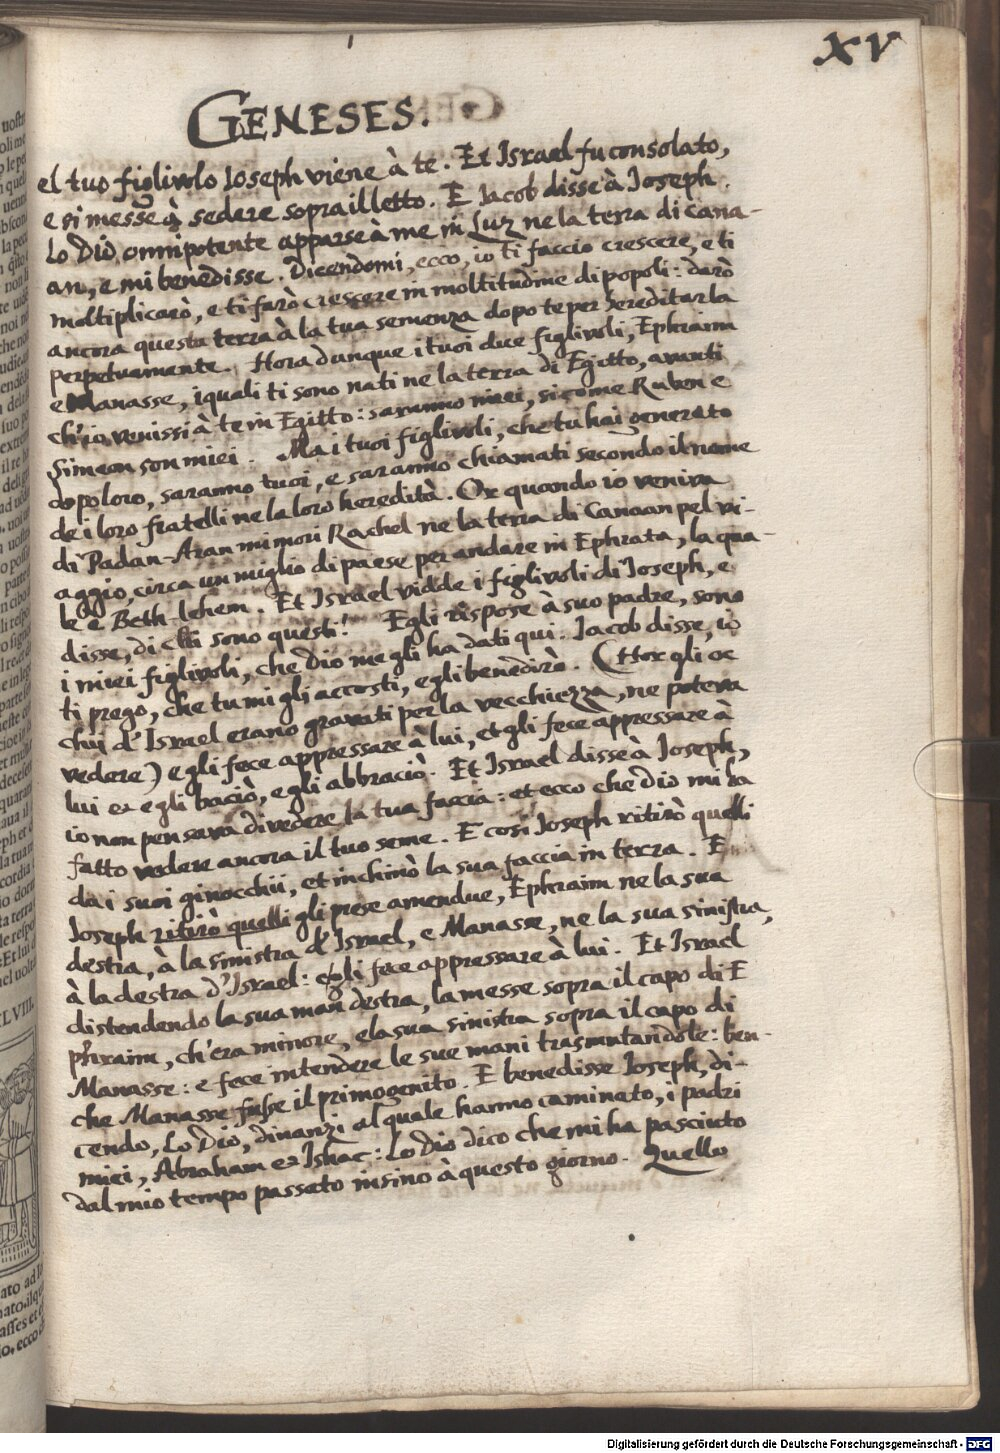 XV
GENESES.
el tuo figlivolo Ioseph viene à te. Et Israel fu consolato,
e si messe à sedere sopra il letto. E Iacob disse à Ioseph
Lo Dio omnipotente apparse à me in Luz ne la terra di Cana-
an, e mi benedisse. Dicendomi, ecco, io ti faccio crescere, e ti
moltiplicarò, e ti farò crescere in moltitudine di popoli: darò
ancora questa terra à la tua semenza dopo te per hereditarla
perpetuamente. Hora dunque i tuoi due figlivoli, Ephraim
e Manasse, i quali ti sono nati ne la terra di Egitto, avanti
ch'io venissi à te in Egitto: saranno miei, si come Ruben e
Simeon son miei. Ma i tuoi figlivoli, che tu hai generato
dopo loro, saranno tuoi, e saranno chiamati secondo il nome
de i loro fratelli ne la loro heredità. Or quando io veniva
di Padan-Aran mi mori Rachel ne la terra di Canaan pel vi-
aggio, circa un miglio di paese per andare in Ephrata, la qua-
le è Beth-lehem. Et Israel vidde i figlivoli di Ioseph, e
disse, di chi sono questi? Egli rispose à suo padre, sono
i miei figlivoli, che dio me gli ha dati qui. Iacob disse, io
ti prego, che tu mi gli accosti, e gli benedirò. (Hor gli oc
chui d'Israel erano gravati per la vecchiezza, ne poteva
vedere) e gli fece appressare à lui, et gli fece appressare à
lui et egli baciò, e gli abbraciò. Et Israel disse à Ioseph,
io non pensava di vedere la tua faccia: et ecco che dio mi ha
fatto vedere ancora il tuo seme. E così Ioseph ritirò quelli
da i suoi ginocchii, et inchinò la sua faccia in terra. E
Ioseph ritirò quelli gli prese amendue, Ephraim ne la sua
destra, à la sinistra d'Israel, e Manasse, ne la sua sinistra,
à la destra d'Israel: e gli fece appressare à lui. Et Israel
distendendo la sua man destra, la messe sopra il capo di E
phraim, ch'era minore, e la sua sinistra sopra il capo di
Manasse: e fece intendere le sue mani trasmutandole: ben-
che Manasse fusse il primogenito. E benedisse Ioseph, di-
cendo, Lo Dio, dinanzi al quale hanno caminato, i padri
miei, Abraham et Ishac: Lo Dio dico che mi ha pasciuto
dal mio tempo passato insino à questo giorno. Quello
Digitalisierung gefördert durch die Deutsche Forschungsgemeinschaft - DFG